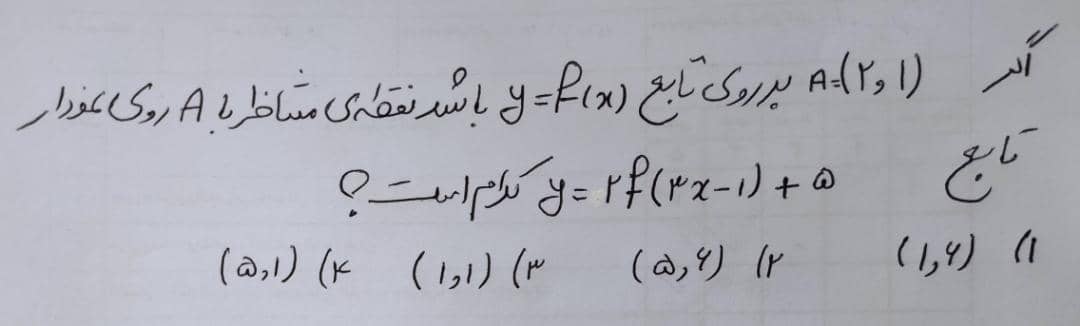 اگر A=(۲,۱) بر روی تابع y=f(x) باشد نقطه‌ی متناظر با A روی نمودار
تابع y=۲f(۳x-۱)+۵ کدام است؟
۱) (۱,۶) ۲) (۵,۶) ۳) (۱,۱) ۴) (۵,۱)